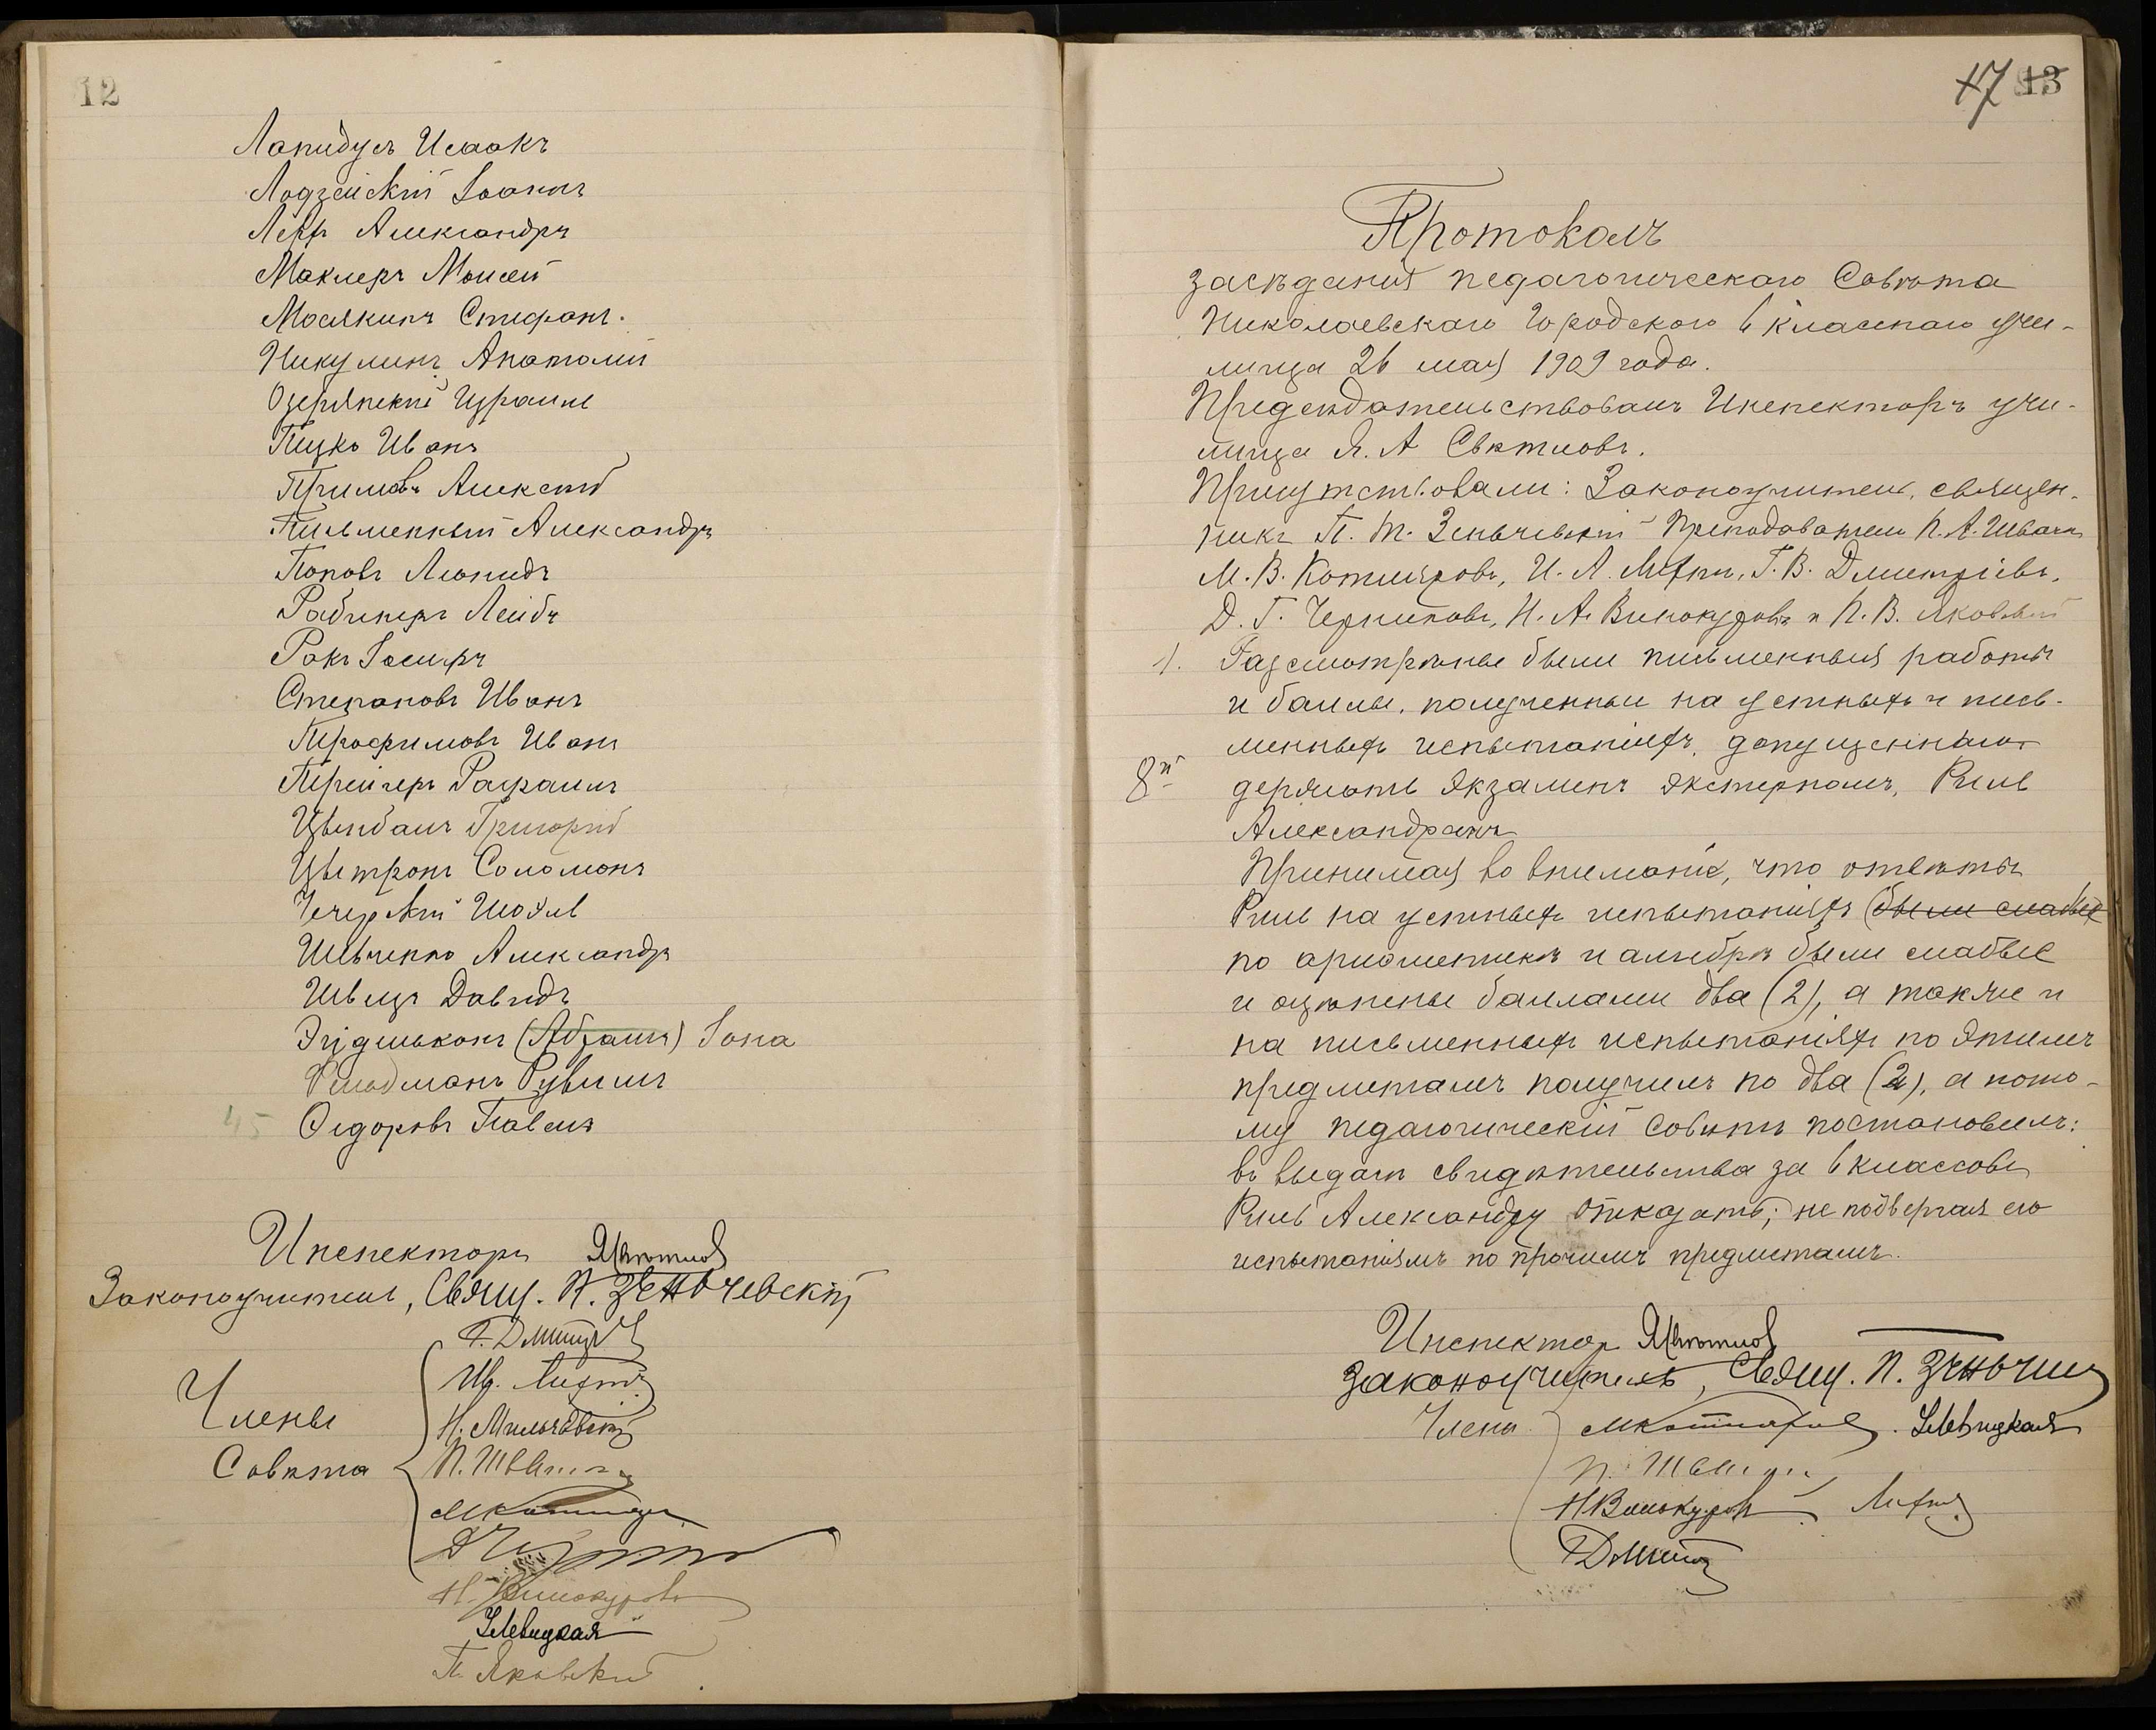 12
Лапидусъ Исаакъ
Лодзейскій Іоаннъ
Лерр Александръ
Маклеръ Моисей
Мосякинъ Стефанъ.
Никулинъ Анатолій
Озерянскій Израиль
Пицко Иванъ
Примовъ Алексѣй
Письменный Александръ
Поповъ Леонидъ
Рабинеръ Лейбъ
Рокъ Іосифъ
Степановъ Иванъ
Трофимовъ Иванъ
Трейгеръ Рафаилъ
Цвибанъ Григорій
Цвитронъ Соломонъ
Чечерскій Шоэль
Шевченко Александръ
Швецъ Давидъ
(Абрамъ) Іона
Фельдманъ Рувимъ
45 Ѳедоровъ Павелъ
Инспекторъ Я.Свѣтлов
Законоучитель, Свящ. П. Зеньчевскій
Г. Дмитр
Ив. Лифт
Н. Мильчевскій
Члены
Совѣта П. Швач
МКотляр
Н. Винокуровъ
Левицкая
П. Яковскій
17 13
Протоколъ
засѣданія педагогическаго Совѣта
Николаевскаго Городского 6 класснаго учи-
лища 26 мая 1909 года.
Предсѣдательствовалъ Инспекторъ учи-
лища Я. А Свѣтловъ.
Присутствовали: Законоучитель, священ-
никъ П. Т. Зеньчевскій Преподаватели П. А. Швач
М. В. Котляровъ, И. А. Лифт, Г. В. Дмитріевъ,
Д. Г. Черниковъ, Н. А. Винокуровъ и П. В. Яковскій
1). Разсмотрѣны были письменныя работы
и баллы, полученныи на устныхъ и пись-
менныхъ испытаніяхъ, допущеннаго
8й держать экзаменъ экстерномъ, Риль
Александромъ
Принимая во вниманіе, что отвѣты
Риль на устныхъ испытаніяхъ (были слабые
по ариѳметикѣ и алгебрѣ были слабые
и оцѣнены баллами два (2), а также и
на письменныхъ испытаніяхъ по этимъ
предметамъ получилъ по два (2), а пото-
му педагогическій совѣтъ постановилъ:
въ выдачѣ свидѣтельства за 6 классовъ
Риль Александру отказать, не подвергая его
испытаніямъ по прочимъ предметамъ.
Инспектор Я.Свѣтлов
Законоучитель, Свящ. П. Зеньчев
Члены МКотляров. Левицкая
П. Швач
НВинокуров Лифт
ГДмит